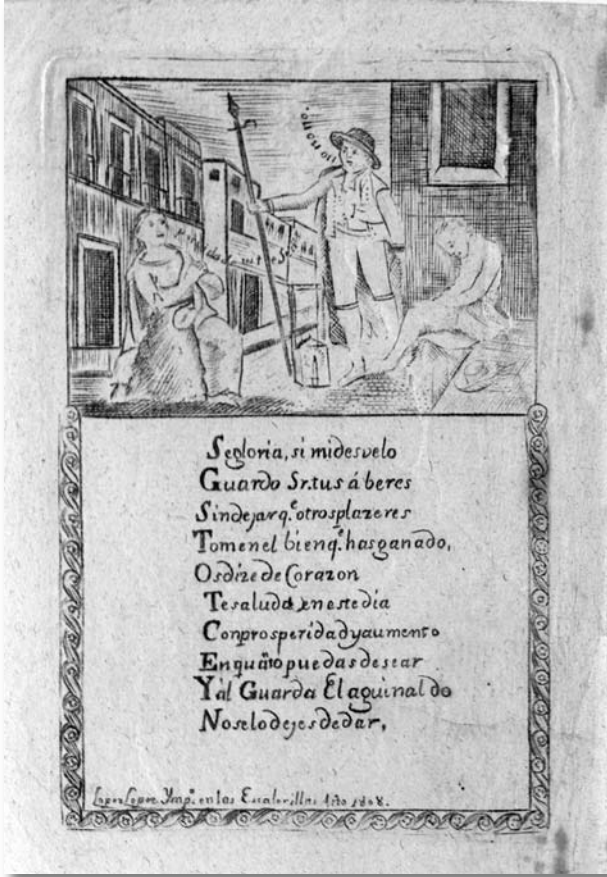 no no no.
de mi te
Segloria, si midesvelo
Guardo Sr. tus á beres
Sindejar q.e otros plazeres
Tomenel bienq.e hasganado,
Osdize de Corazon
Tesaluda enestedia
Conprosperidadyaumento
Enquãto puedasdesear
Yál Guarda Elaguinaldo
Noselodejesdedar,
Lopez Lopez Ymp.r en las Escalerillas Año 1808.